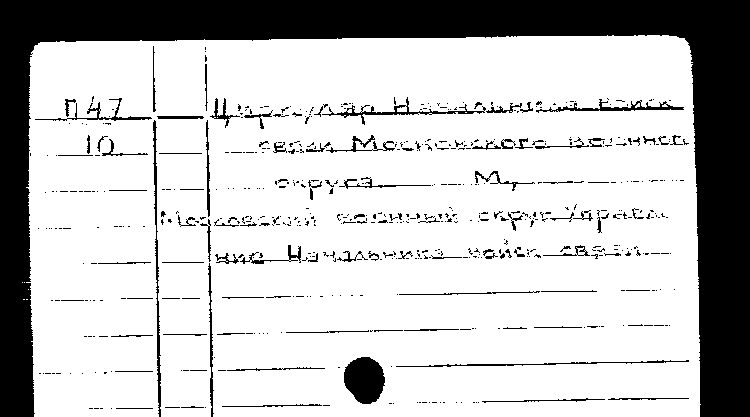 П47 Циркуляр Начальника войск
10 связи Московского военного
округа. М.,
Московский военный округ. Управле
ние Начальника войск связи.